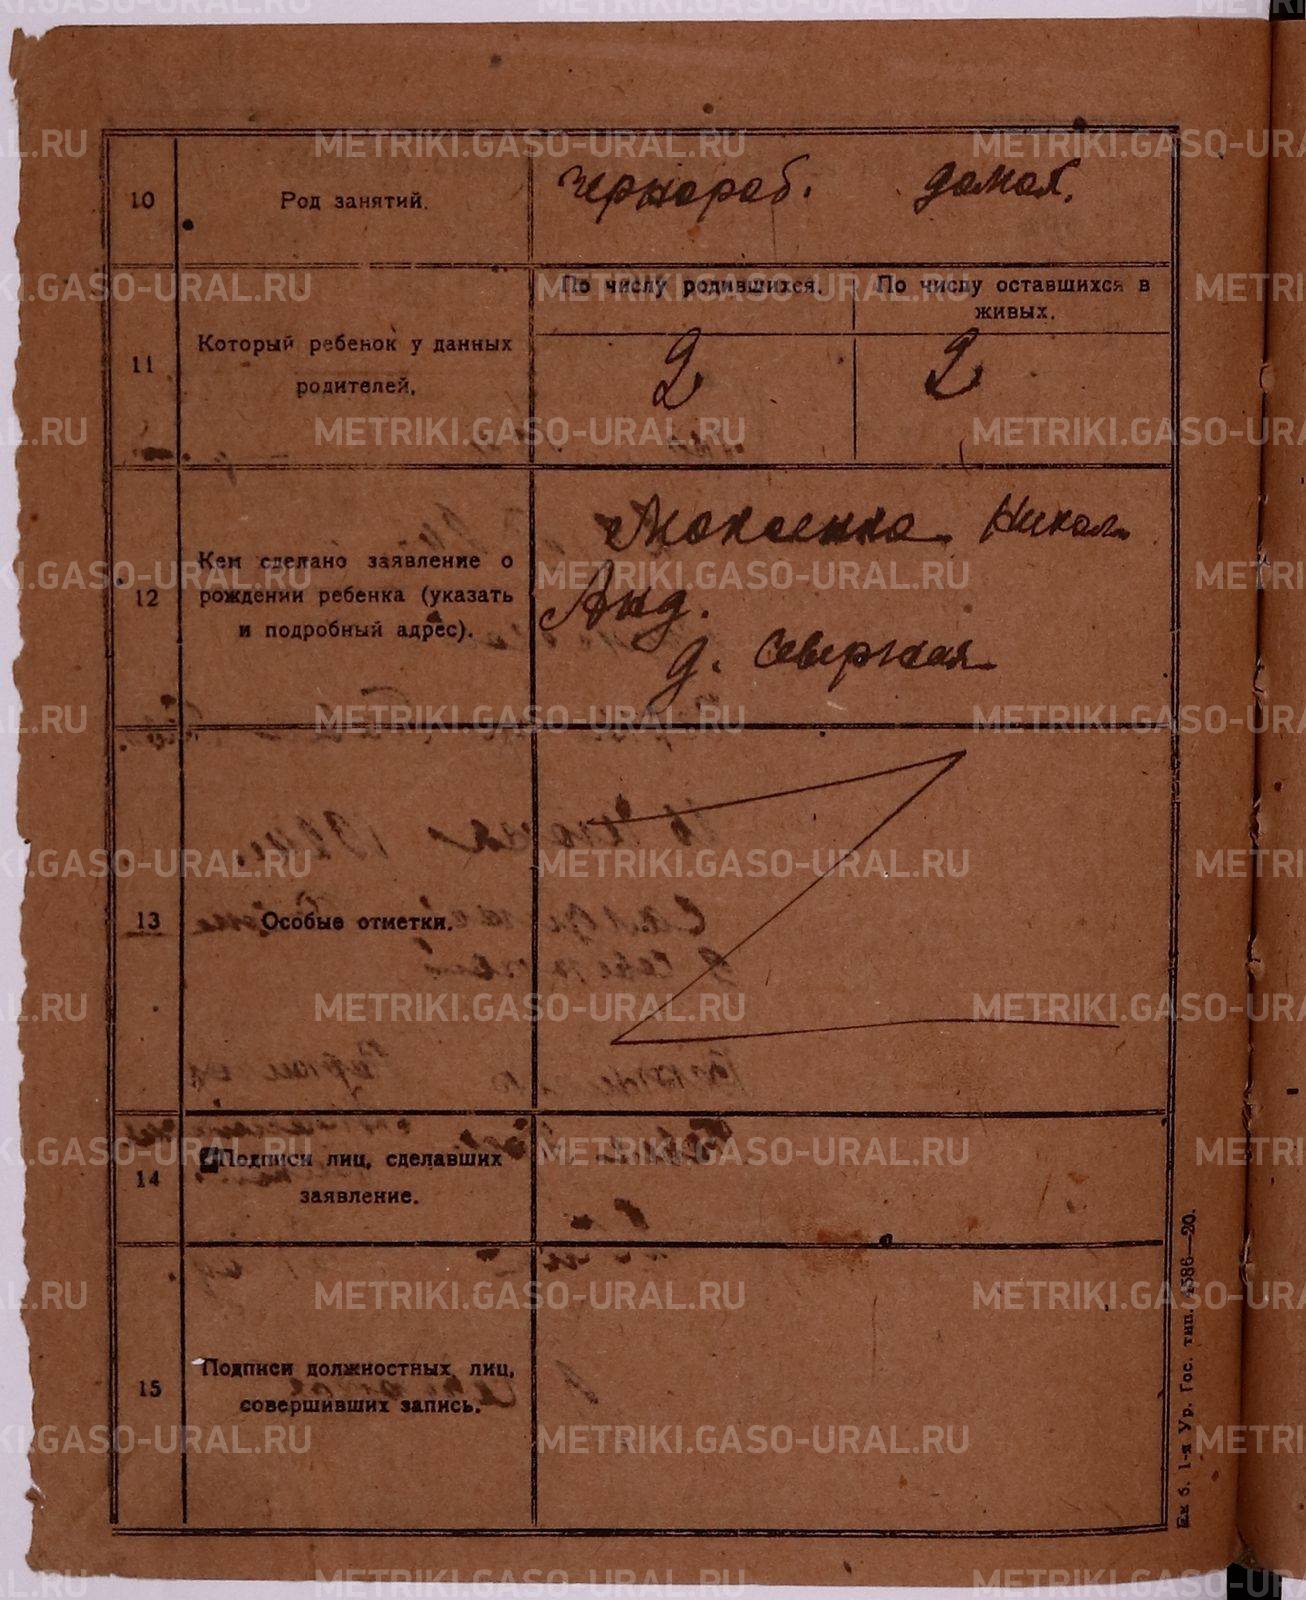 10
Род занятий.
чернораб. домох.
11
Который ребенок у данных
родителей.
По числу родившихся.
По числу оставшихся в
живых.
2
2
12
Кем сделано заявление о
рождении ребенка (указать
и подробный адрес).
Никол.
Анд.
д. Северная
13
Особые отметки.
14
Подписи лиц, сделавших
заявление.
15
Подписи должностных лиц,
совершивших запись.
Ек б. 1-я Ур. Гос. тип. 4586—20.
METRIKI.GASO-URAL.RU